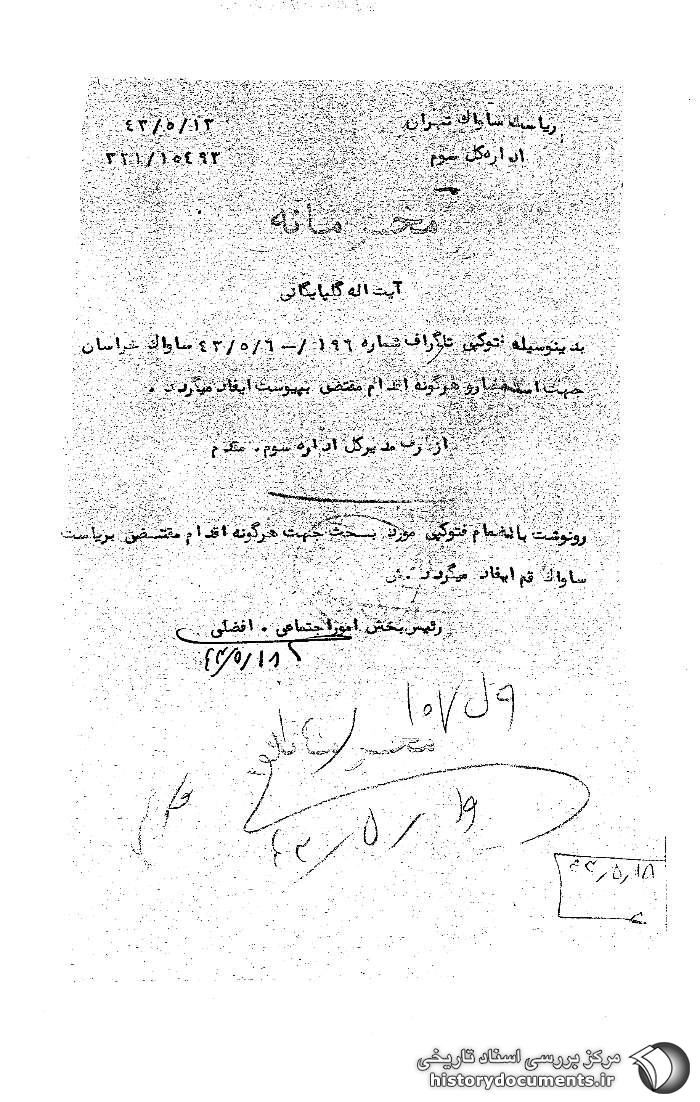 ریاست ساواک تهران
۴۳/۵/۱۳
اداره کل سوم
۳۲۱/۱۰۴۹۳
محرمانه
آیت اله گلپایگانی
بدینوسیله فتوکپی تلگراف شماره ۱۹۶/– ۴۳/۵/۶ ساواک خراسان
جهت استحضار و هرگونه اقدام مقتضی بپیوست ایفاد میگردد.
از طرف مدیرکل اداره سوم. مقدم
رونوشت بانضمام فتوکپی مورد بحث جهت هرگونه اقدام مقتضی بریاست
ساواک قم ایفاد میگردد.
رئیس بخش امور اجتماعی. افضلی
۴۳/۵/۱۸
۱۰۷
محرمانه
۴۳/۵/۱۹
۴۳/۵/۱۸
مرکز بررسی اسناد تاریخی
historydocuments.ir